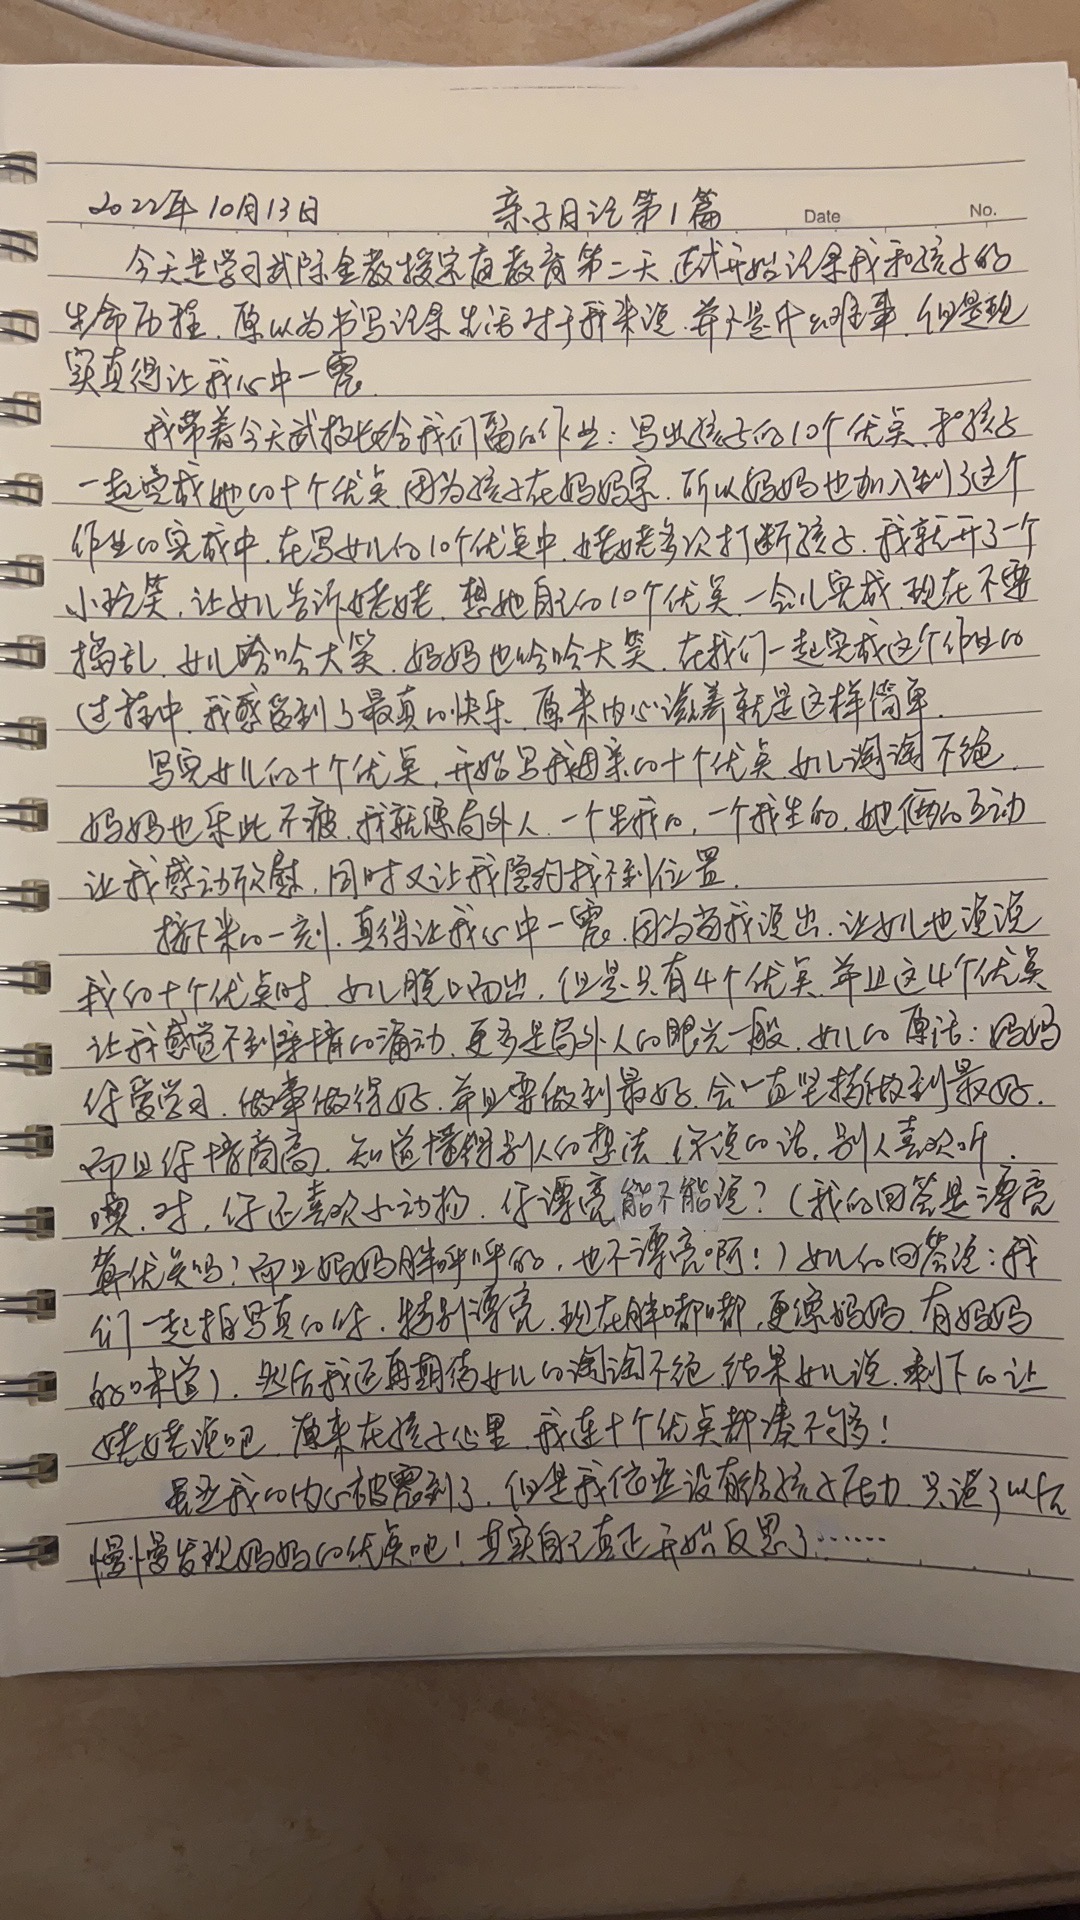 2022年10月13日 亲子日记第1篇 Date No.
今天是学习武际金教授家庭教育第二天，正式开始记录我和孩子的
生命历程，原以为书写记录生活对于我来说，并不是什么难事，但是现
实真得让我心中一震。
我带着今天武校长给我们留的作业：写出孩子的10个优点，和孩子
一起完成她的十个优点，因为孩子在妈妈家，所以妈妈也加入到了这个
作业的完成中，在写女儿的10个优点中，姥姥多次打断孩子，我就开了一个
小玩笑，让女儿告诉姥姥，想她自己的10个优点，一会儿完成，现在不要
捣乱，女儿哈哈大笑，妈妈也哈哈大笑，在我们一起完成这个作业的
过程中，我感受到了最真的快乐，原来内心滋养就是这样简单。
写完女儿的十个优点，开始写我母亲的十个优点，女儿淘淘不绝，
妈妈也乐此不疲，我就像局外人，一个生我的，一个我生的，她俩的互动
让我感动欣慰，同时又让我隐约找不到位置。
接下来的一刻，真得让我心中一震，因为当我说出，让女儿也说说
我的十个优点时，女儿脱口而出，但是只有4个优点，并且这4个优点
让我感觉不到亲情的涌动，更多是局外人的眼光一般，女儿的原话：妈妈
你爱学习，做事做得好，并且要做到最好，会一直坚持做到最好，
而且你情商高，知道懂得别人的想法，你说的话，别人喜欢听，
噢，对，你还喜欢小动物，你漂亮能不能说？（我的回答是漂亮
算优点吗？而且妈妈胖呼呼的，也不漂亮啊！）女儿的回答说：我
们一起拍写真的你，特别漂亮，现在胖嘟嘟，更像妈妈，有妈妈
的味道），然后我还再期待女儿的淘淘不绝，结果女儿说，剩下的让
姥姥说吧，原来在孩子心里，我连十个优点都凑不够！
虽然我的内心被震到了，但是我依然没有给孩子压力，只说了以后
慢慢发现妈妈的优点吧！其实自己真正开始反思了……